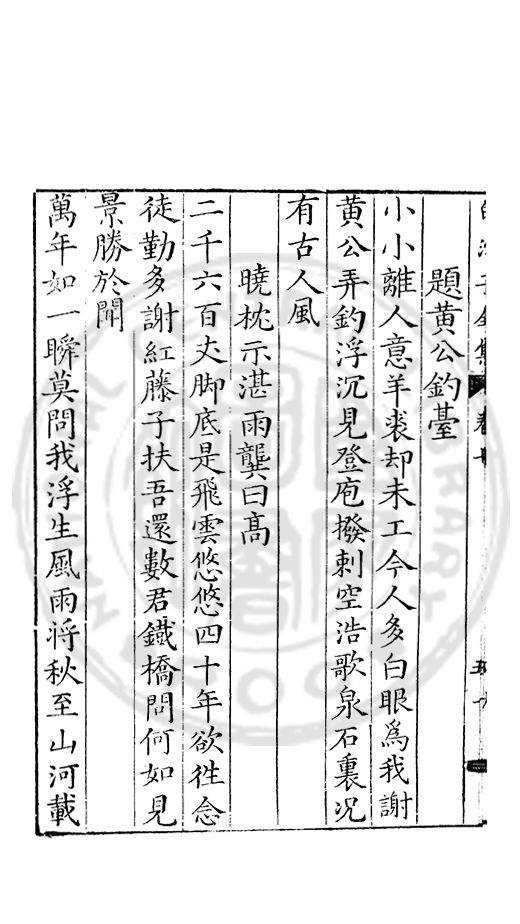 白沙子全集 卷
題黄公釣臺
小小離人意羊裘却未工今人多白眼爲我謝
黄公弄釣浮沉見登庖撥剌空浩歌泉石裏况
有古人風
曉枕示湛雨龔曰高
二千六百丈脚底是飛雲悠悠四十年欲徃念
徒勤多謝紅藤子扶吾還數君鐵橋問何如見
景勝於聞
萬年如一瞬莫問我浮生風雨将秋至山河載